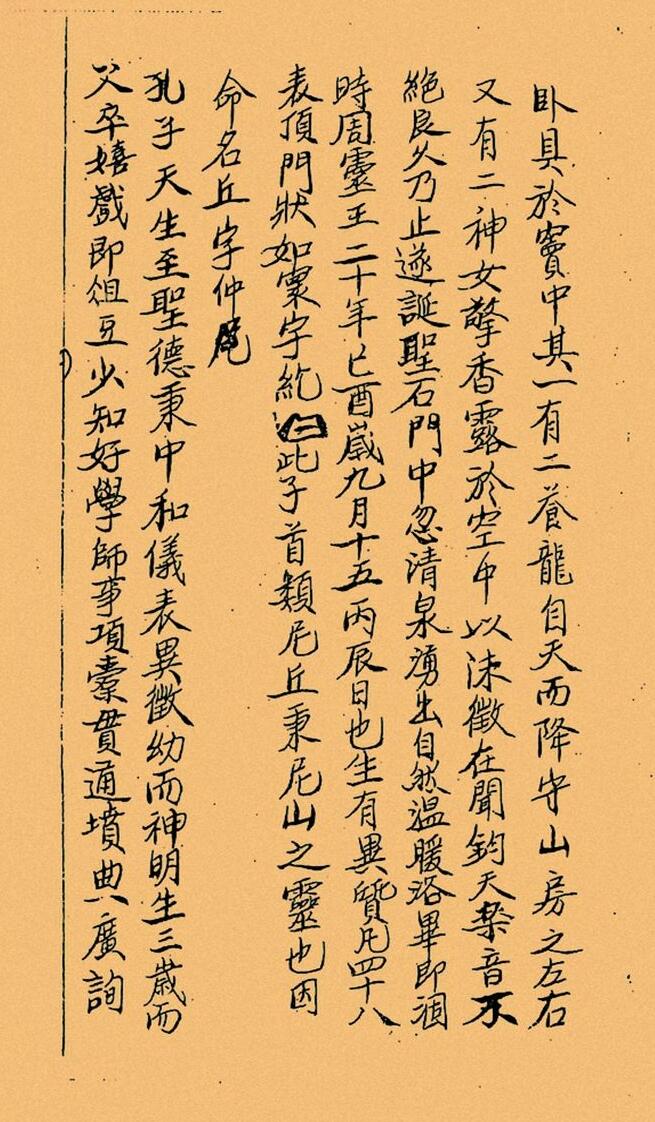 卧具於竇中其一有二蒼龍自天而降守山房之左右
又有二神女擎香露於空中以沬徵在聞鈞天樂音不
絕良久乃止遂誕聖石門中忽清泉湧出自然溫暖洛畢即涸
時周靈王二十年已酉歲九月十五丙辰日也生有異質凡四十八
表頂門狀如寰字紇曰此子首類尼丘秉尼山之靈也因
命名丘字仲尾
孔子天生至聖德秉中和儀表異徵幼而神明生三歲而
父卒嬉戲即俎豆少知好學師事項橐貫通墳典廣詢